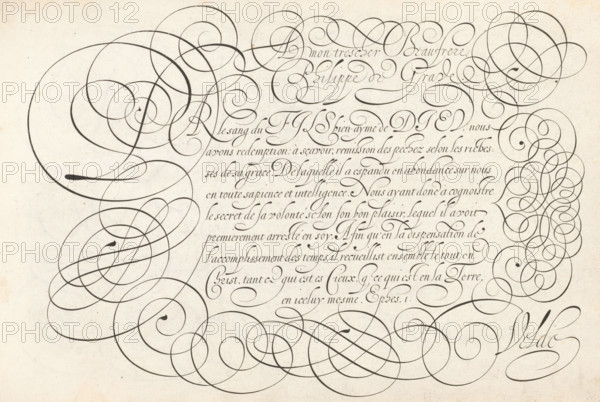 A mon trescher Beaufrere
Philippe du Grave
PAr le sang du FILS bien aymé de DIEU, nous
avons redemption: a sçavoir, remission des pechez, selon les riches-
ses de sa grace. De laquelle il a espandu en abondance sur nous
en toute sapience et intelligence. Nous ayant donc a cognoistre
le secret de sa volonte selon son bon plaisir, lequel il avoit
premierement arreste en soy. Afin qu'en la dispensation de
l'accomplissement des temps, il recueillist ensemble le tout, en
Christ, tant ce qui est es Cieux, q̃ ce qui est en la Terre,
en iceluy mesme. Ephes. 1.
Velde
PHOTO12